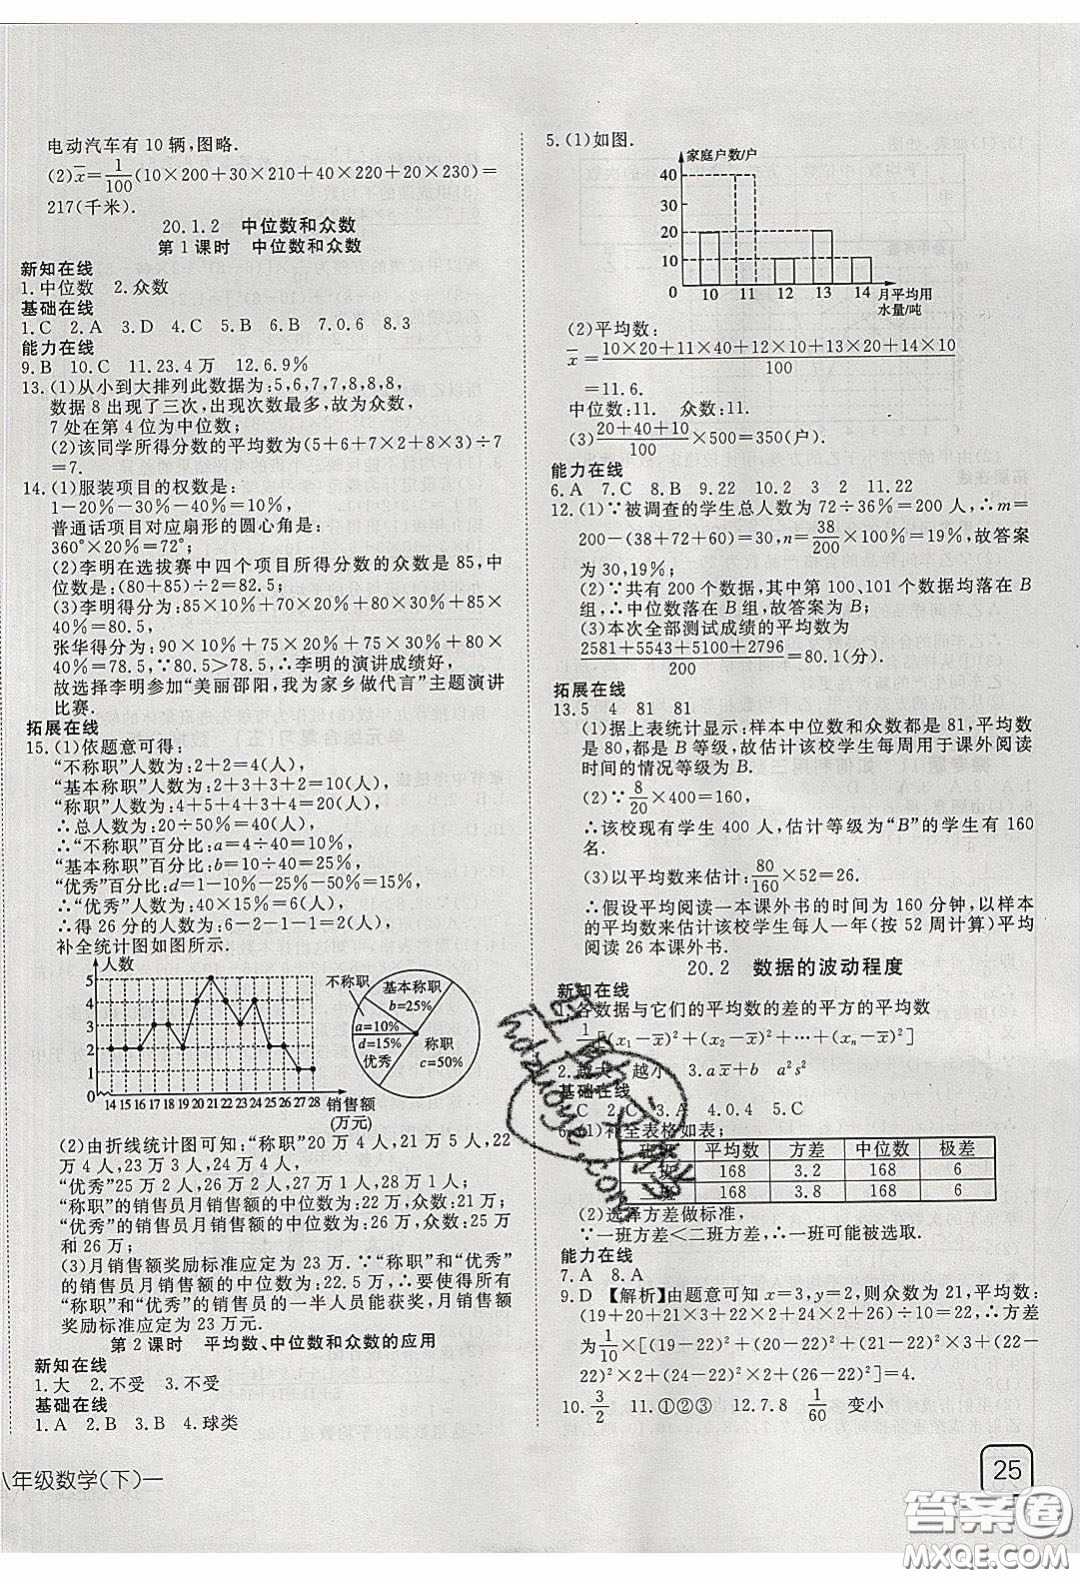 电动汽车有 10 辆,图略.
(2)x̄=1/100(10×200+30×210+40×220+20×230)=
217(千米).
20.1.2 中位数和众数
第 1 课时 中位数和众数
新知在线
1.中位数 2.众数
基础在线
1.C 2.A 3.D 4.C 5.B 6.B 7.0.6 8.3
能力在线
9.B 10.C 11.23.4 万 12.6.9%
13.(1)从小到大排列此数据为:5,6,7,7,8,8,8,
数据 8 出现了三次,出现次数最多,故为众数,
7 处在第 4 位为中位数;
(2)该同学所得分数的平均数为(5+6+7×2+8×3)÷7
=7.
14.(1)服装项目的权数是:
1-20%-30%-40%=10%,
普通话项目对应扇形的圆心角是:
360°×20%=72°;
(2)李明在选拔赛中四个项目所得分数的众数是 85,中
位数是:(80+85)÷2=82.5;
(3)李明得分为:85×10%+70×20%+80×30%+85
×40%=80.5,
张华得分为:90×10%+75×20%+75×30%+80
×40%=78.5,∵80.5>78.5,∴李明的演讲成绩好,
故选择李明参加“美丽邵阳,我为家乡做代言”主题演讲
比赛.
拓展在线
15.(1)依题意可得:
“不称职”人数为:2+2=4(人),
“基本称职”人数为:2+3+3+2=10(人),
“称职”人数为:4+5+4+3+4=20(人),
∴总人数为:20÷50%=40(人),
∴“不称职”百分比:a=4÷40=10%,
“基本称职”百分比:b=10÷40=25%,
“优秀”百分比:d=1-10%-25%-50%=15%,
∴“优秀”人数为:40×15%=6(人),
∴得 26 分的人数为:6-2-1-1=2(人),
补全统计图如图所示.
人数
5
4
3
2
1
0
14 15 16 17 18 19 20 21 22 23 24 25 26 27 28 销售额
(万元)
不称职
基本称职
b=25%
a=10%
d=15%
优秀
称职
c=50%
(2)由折线统计图可知:“称职”20 万 4 人,21 万 5 人,22
万 4 人,23 万 3 人,24 万 4 人,
“优秀”25 万 2 人,26 万 2 人,27 万 1 人,28 万 1 人,
“称职”的销售员月销售额的中位数为:22 万,众数:21 万;
“优秀”的销售员月销售额的中位数为:26 万,众数:25 万
和 26 万;
(3)月销售额奖励标准应定为 23 万元.∵“称职”和“优秀”
的销售员月销售额的中位数为:22.5 万,∴要使得所有
“称职”和“优秀”的销售员的一半人员能获奖,月销售额
奖励标准应定为 23 万元.
第 2 课时 平均数、中位数和众数的应用
新知在线
1.大 2.不受 3.不受
基础在线
1.A 2.B 3.B 4.球类
八年级数学(下)一
5.(1)如图.
家庭户数/户
40
30
20
10
0
10 11 12 13 14 月平均用
水量/吨
(2)平均数:
x̄=(10×20+11×40+12×10+13×20+14×10)/100
=11.6.
中位数:11. 众数:11.
(3)(20+40+10)/100×500=350(户).
能力在线
6.A 7.C 8.B 9.22 10.2 3 2 11.22
12.(1)∵被调查的学生总人数为 72÷36%=200 人,∴m=
200-(38+72+60)=30,n=38/200×100%=19%,故答案
为 30,19%;
(2)∵共有 200 个数据,其中第 100、101 个数据均落在 B
组,∴中位数落在 B 组,故答案为 B;
(3)本次全部测试成绩的平均数为
(2581+5543+5100+2796)/200=80.1(分).
拓展在线
13.5 4 81 81
(1)根据上表统计显示:样本中位数和众数都是 81,平均数
是 80,都是 B 等级,故估计该校学生每周用于课外阅读
时间的情况等级为 B.
(2)∵8/20×400=160.
∴该校现有学生 400 人,估计等级为“B”的学生有 160
名.
(3)以平均数来估计:80/160×52=26.
∴假设平均阅读一本课外书的时间为 160 分钟,以样本
的平均数来估计该校学生每人一年(按 52 周计算)平均
阅读 26 本课外书.
20.2 数据的波动程度
新知在线
1.各数据与它们的平均数的差的平方的平均数
1/n[(x₁-x̄)²+(x₂-x̄)²+…+(xₙ-x̄)²]
2.越大 越小 3.ax̄+b a²s²
基础在线
1.C 2.C 3.A 4.0.4 5.C
6.(1)补全表格如表;
班级 平均数 方差 中位数 极差
一班 168 3.2 168 6
二班 168 3.8 168 6
(2)选择方差做标准,
∵一班方差<二班方差,∴一班可能被选取.
能力在线
7.A 8.A
9.D 【解析】由题意可知 x=3,y=2,则众数为 21,平均数:
(19+20+21×3+22×2+24×2+26)÷10=22,∴方差
为 1/10×[(19-22)²+(20-22)²+(21-22)²×3+(22-
22)²×2+(24-22)²×2+(26-22)²]=4.
10.3/2 11.①②③ 12.7.8 1/60 变小
25
答案卷
MXQE.COM
hdzuoye.com